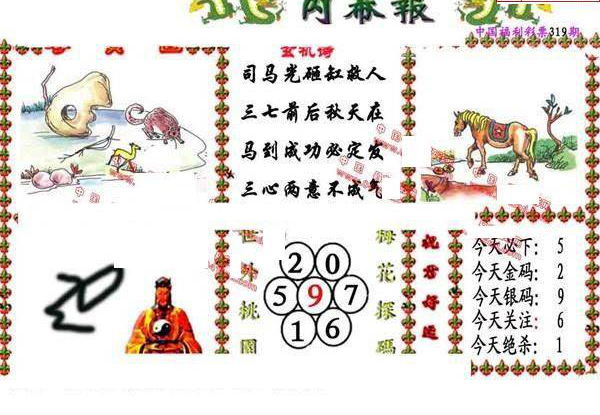 内幕報
中国福利彩票319期
玄机诗
司马光砸缸救人
三七前后秋天在
马到成功必定发
三心两意不成气
世外桃園
2 0
5 9 7
1 6
梅花探碼
祝君好运
今天必下: 5
今天金码: 2
今天银码: 9
今天关注: 6
今天绝杀: 1